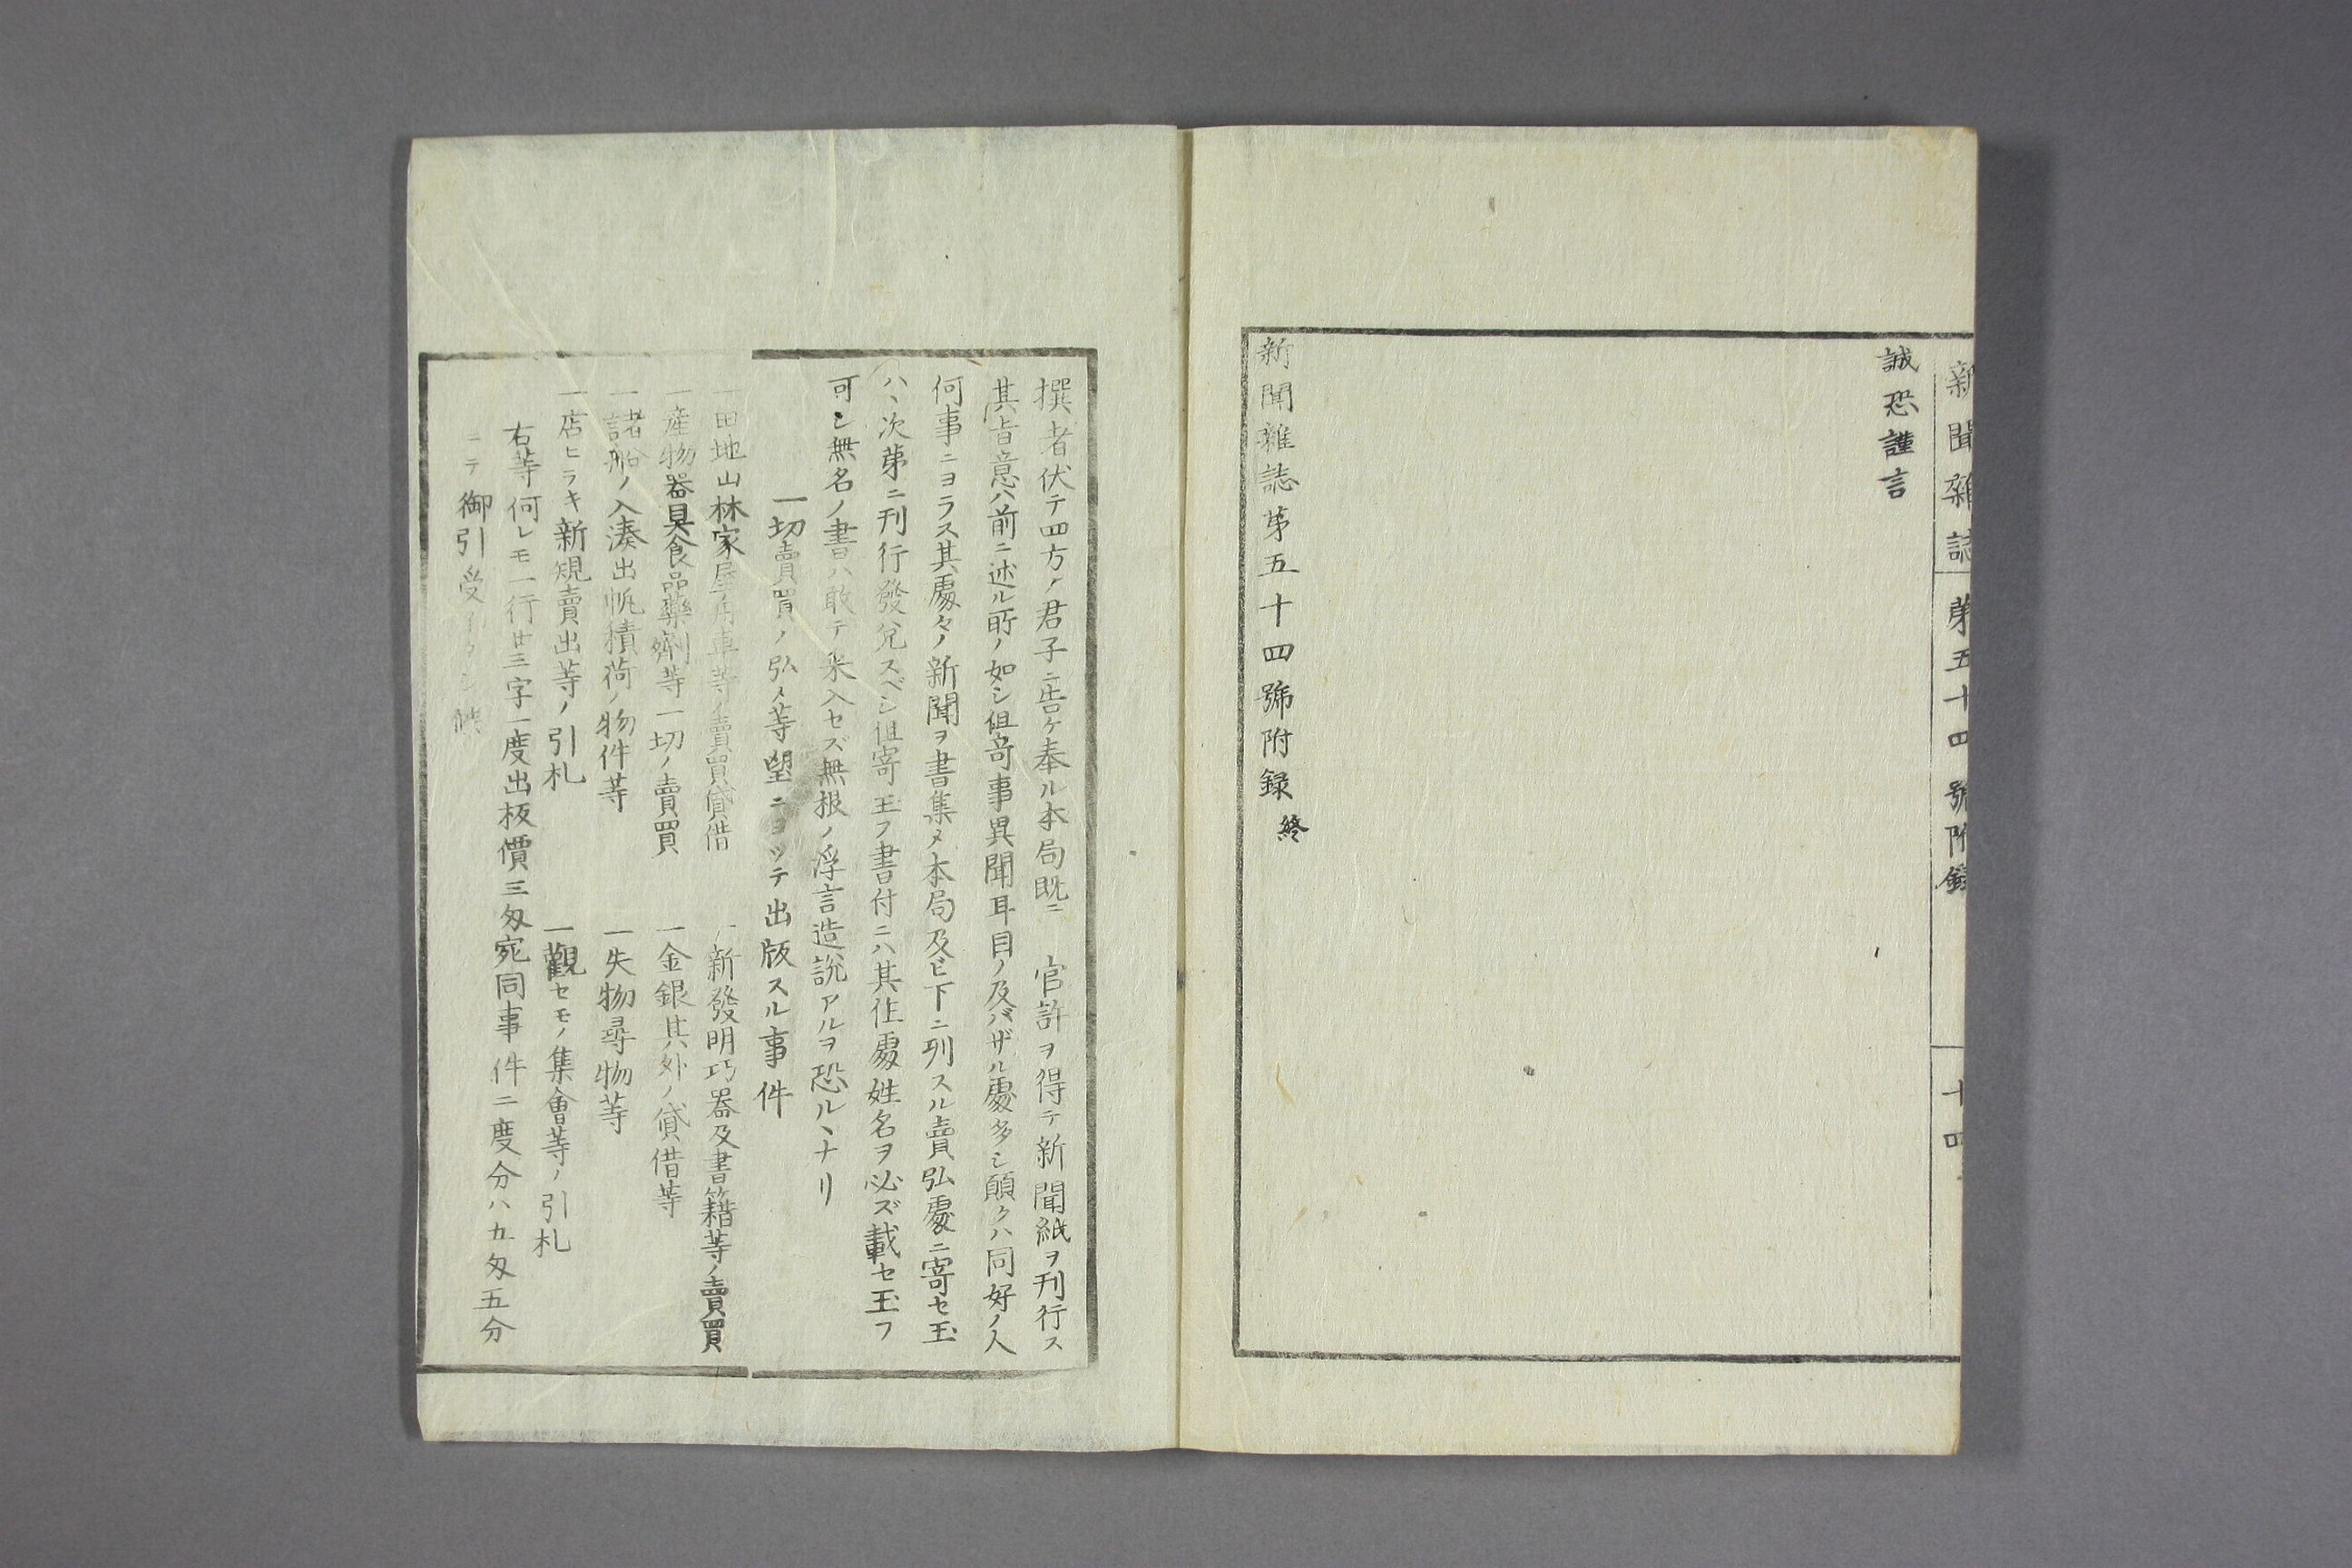 新聞雜誌 第五十四號附錄 十四
誠恐謹言
新聞雜誌第五十四號附録終
撰者伏テ四方ノ君子ニ告ケ奉ル本局既ニ 官許ヲ得テ新聞紙ヲ刊行ス
其旨意ハ前ニ述ル所ノ如シ但奇事異聞耳目ノ及バザル處多シ願クハ同好ノ人
何事ニヨラス其處々ノ新聞ヲ書集メ本局及ビ下ニ列スル賣弘處ニ寄セ玉
ハヽ次第ニ刊行發兌スベシ但寄玉フ書付ニハ其住處姓名ヲ必ズ載セ玉フ
可シ無名ノ書ハ敢テ采入セズ無根ノ浮言造説アルヲ恐ルヽナリ
一切賣買ノ弘メ等望ニヨツテ出版スル事件
一田地山林家屋舟車等ノ賣買貸借 一新發明巧器及書籍等ノ賣買
一産物器具食品藥劑等一切ノ賣買 一金銀其外ノ貸借等
一諸船ノ入湊出帆積荷ノ物件等 一失物尋物等
一店ヒラキ新規賣出等ノ引札 一觀セモノ集會等ノ引札
右等何レモ一行廿三字一度出板價三匁宛同事件二度分ハ九匁五分
ニテ御引受